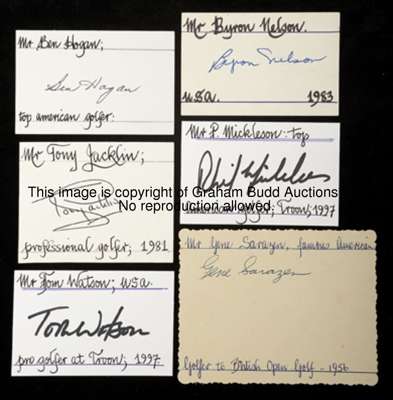 Mr Ben Hogan;
Ben Hogan
top american golfer:
Mr Byron Nelson.
Byron Nelson
u.s.a. 1983
Mr Tony Jacklin;
Tony Jacklin
professional golfer; 1981
Mr P. Mickleson: top
Phil Mickelson
american golfer; Troon; 1997
This image is copyright of Graham Budd Auctions
No reproduction allowed.
Mr Tom Watson; u.s.a.
Tom Watson
pro golfer at Troon; 1997
Mr Gene Sarazen, famous American
Gene Sarazen
Golfer to British Open Golf - 1956